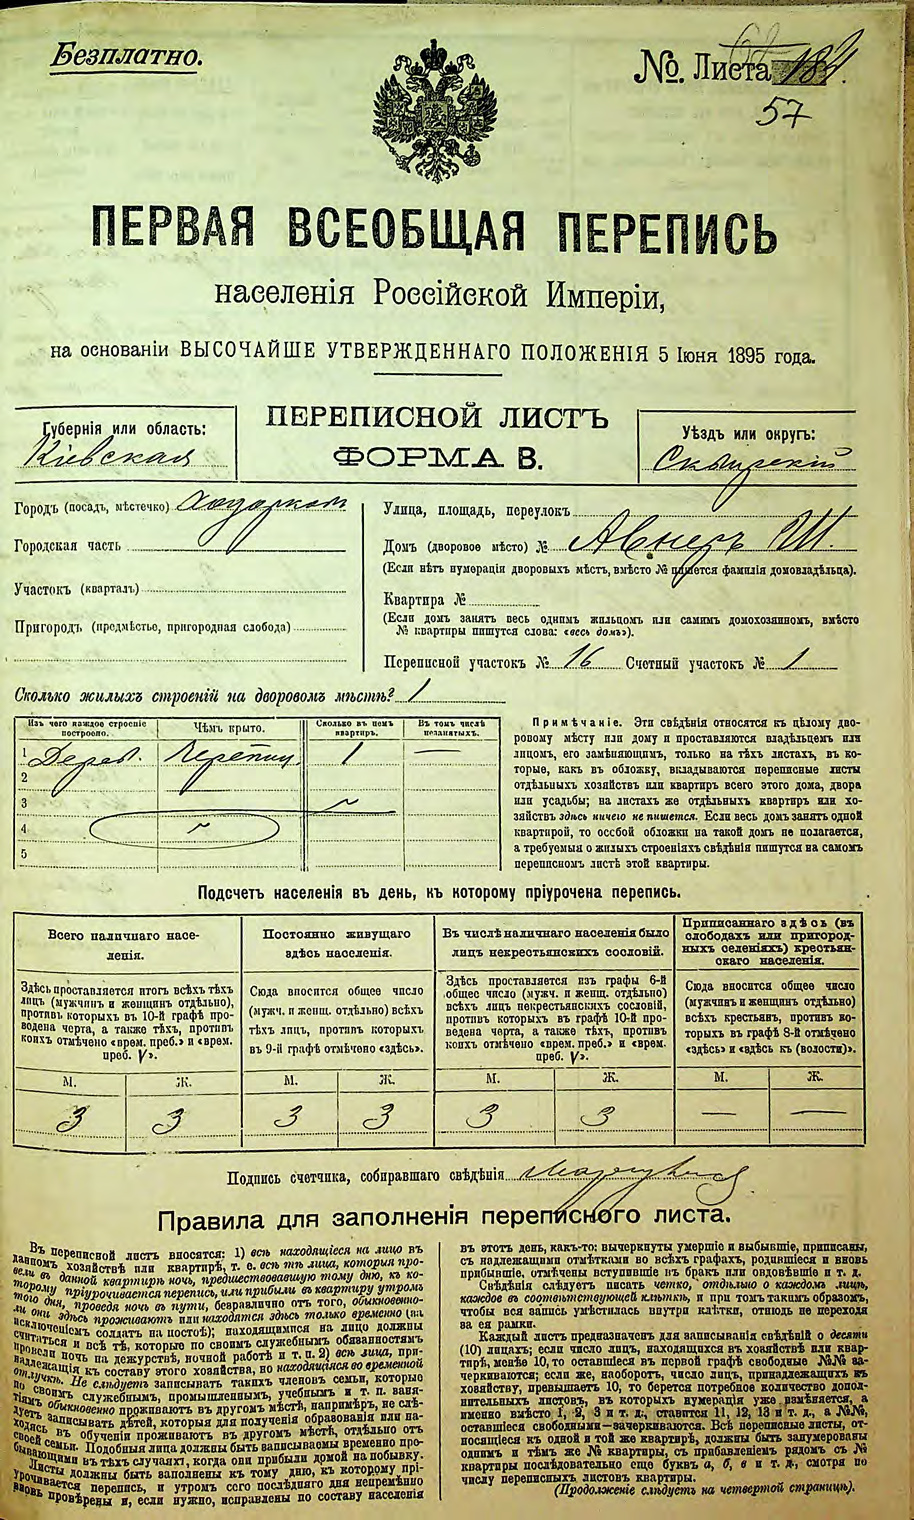 Безплатно.
№. Листа
57
ПЕРВАЯ ВСЕОБЩАЯ ПЕРЕПИСЬ
населенія Россійской Имперіи,
на основаніи ВЫСОЧАЙШЕ УТВЕРЖДЕННАГО ПОЛОЖЕНІЯ 5 Іюня 1895 года.
Губернія или область:
Кіевская
ПЕРЕПИСНОЙ ЛИСТЪ
ФОРМА В.
Уѣздъ или округъ:
Сквирскій
Городъ (посадъ, мѣстечко) Ходорков
Городская часть
Участокъ (кварталъ)
Пригородъ (предмѣстье, пригородная слобода)
Улица, площадь, переулокъ
Домъ (дворовое мѣсто) № Авнеръ Ш.
(Если нѣтъ нумераціи дворовыхъ мѣстъ, вмѣсто № пишется фамилія домовладѣльца).
Квартира №
(Если домъ занятъ весь однимъ жильцомъ или самимъ домохозяиномъ, вмѣсто
№ квартиры пишутся слова: «весь домъ»).
Переписной участокъ № 16 Счетный участокъ № 1
Сколько жилыхъ строеній на дворовомъ мѣстѣ? 1
Изъ чего каждое строеніе построено.
Чѣмъ крыто.
Сколько въ немъ квартиръ.
Въ томъ числѣ незанятыхъ.
1 Дерев. Черепиц. 1 —
2
3
4
5
Примѣчаніе. Эти свѣдѣнія относятся къ цѣлому дво-
ровому мѣсту или дому и проставляются владѣльцемъ или
лицомъ, его замѣняющимъ, только на тѣхъ листахъ, въ ко-
торые, какъ въ обложку, вкладываются переписные листы
отдѣльныхъ хозяйствъ или квартиръ всего этого дома, двора
или усадьбы; на листахъ же отдѣльныхъ квартиръ или хо-
зяйствъ здѣсь ничего не пишется. Если весь домъ занятъ одной
квартирой, то особой обложки на такой домъ не полагается,
а требуемыя о жилыхъ строеніяхъ свѣдѣнія пишутся на самомъ
переписномъ листѣ этой квартиры.
Подсчетъ населенія въ день, къ которому пріурочена перепись.
Всего наличнаго насе-
ленія.
Здѣсь проставляется итогъ всѣхъ тѣхъ
лицъ (мужчинъ и женщинъ отдѣльно),
противъ которыхъ въ 10-й графѣ про-
ведена черта, а также тѣхъ, противъ
коихъ отмѣчено «врем. преб.» и «врем.
преб. V».
М. Ж.
3 3
Постоянно живущаго
здѣсь населенія.
Сюда вносится общее число
(мужч. и женщ. отдѣльно) всѣхъ
тѣхъ лицъ, противъ которыхъ
въ 9-й графѣ отмѣчено «здѣсь».
М. Ж.
3 3
Въ числѣ наличнаго населенія было
лицъ некрестьянскихъ сословій.
Здѣсь проставляется изъ графы 6-й
общее число (мужч. и женщ. отдѣльно)
всѣхъ лицъ некрестьянскихъ сословій,
противъ которыхъ въ графѣ 10-й про-
ведена черта, а также тѣхъ, противъ
коихъ отмѣчено «врем. преб.» и «врем.
преб. V».
М. Ж.
3 3
Приписаннаго здѣсь (въ
слободахъ или пригород-
ныхъ селеніяхъ) крестьян-
скаго населенія.
Сюда вносится общее число
(мужчинъ и женщинъ отдѣльно)
всѣхъ крестьянъ, противъ ко-
торыхъ въ графѣ 8-й отмѣчено
«здѣсь» и «здѣсь къ (волости)».
М. Ж.
— —
Подпись счетчика, собиравшаго свѣдѣнія
Правила для заполненія переписного листа.
Въ переписной листъ вносятся: 1) всѣ находящіеся на лицо въ
данномъ хозяйствѣ или квартирѣ, т. е. всѣ тѣ лица, которыя про-
вели въ данной квартирѣ ночь, предшествовавшую тому дню, къ ко-
торому пріурочивается перепись, или прибыли въ квартиру утромъ
того дня, проведя ночь въ пути, безразлично отъ того, обыкновенно-
ли они здѣсь проживаютъ или находятся здѣсь только временно (за
исключеніемъ солдатъ на постоѣ); находящимися на лицо должны
считаться и всѣ тѣ, которые по своимъ служебнымъ обязанностямъ
провели ночь на дежурствѣ, ночной работѣ и т. п. 2) всѣ лица, при-
надлежащія къ составу этого хозяйства, но находящіяся во временной
отлучкѣ. Не слѣдуетъ записывать такихъ членовъ семьи, которые
по своимъ служебнымъ, промышленнымъ, учебнымъ и т. п. заня-
тіямъ обыкновенно проживаютъ въ другомъ мѣстѣ, напримѣръ, не слѣ-
дуетъ записывать дѣтей, которыя для полученія образованія или на-
ходясь въ обученіи проживаютъ въ другомъ мѣстѣ, отдѣльно отъ
своей семьи. Подобныя лица должны быть записываемы временно про-
бывающими въ тѣхъ случаяхъ, когда они прибыли домой на побывку.
Листы должны быть заполнены къ тому дню, къ которому прі-
урочивается перепись, и утромъ сего послѣдняго дня непремѣнно
вновь провѣрены и, если нужно, исправлены по составу населенія
въ этотъ день, какъ-то: вычеркнуты умершіе и выбывшіе, приписаны,
съ надлежащими отмѣтками во всѣхъ графахъ, родившіеся и вновь
прибывшіе, отмѣчены вступившіе въ бракъ или овдовѣвшіе и т. д.
Свѣдѣнія слѣдуетъ писать четко, отдѣльно о каждомъ лицѣ,
каждое въ соотвѣтствующей клѣткѣ, и при томъ такимъ образомъ,
чтобы вся запись умѣстилась внутри клѣтки, отнюдь не переходя
за ея рамки.
Каждый листъ предназначенъ для записыванія свѣдѣній о десяти
(10) лицахъ; если число лицъ, находящихся въ хозяйствѣ или квар-
тирѣ, менѣе 10, то оставшіеся въ первой графѣ свободные №№ за-
черкиваются; если же, наоборотъ, число лицъ, принадлежащихъ къ
хозяйству, превышаетъ 10, то берется потребное количество допол-
нительныхъ листовъ, въ которыхъ нумерація уже измѣняется, а
именно вмѣсто 1, 2, 3 и т. д., ставится 11, 12, 13 и т. д., а №№,
оставшіеся свободными—зачеркиваются. Всѣ переписные листы, от-
носящіеся къ одной и той же квартирѣ, должны быть занумерованы
однимъ и тѣмъ же № квартиры, съ прибавленіемъ рядомъ съ №
квартиры послѣдовательно еще буквъ а, б, в и т. д., смотря по
числу переписныхъ листовъ квартиры.
(Продолженіе слѣдуетъ на четвертой страницѣ).